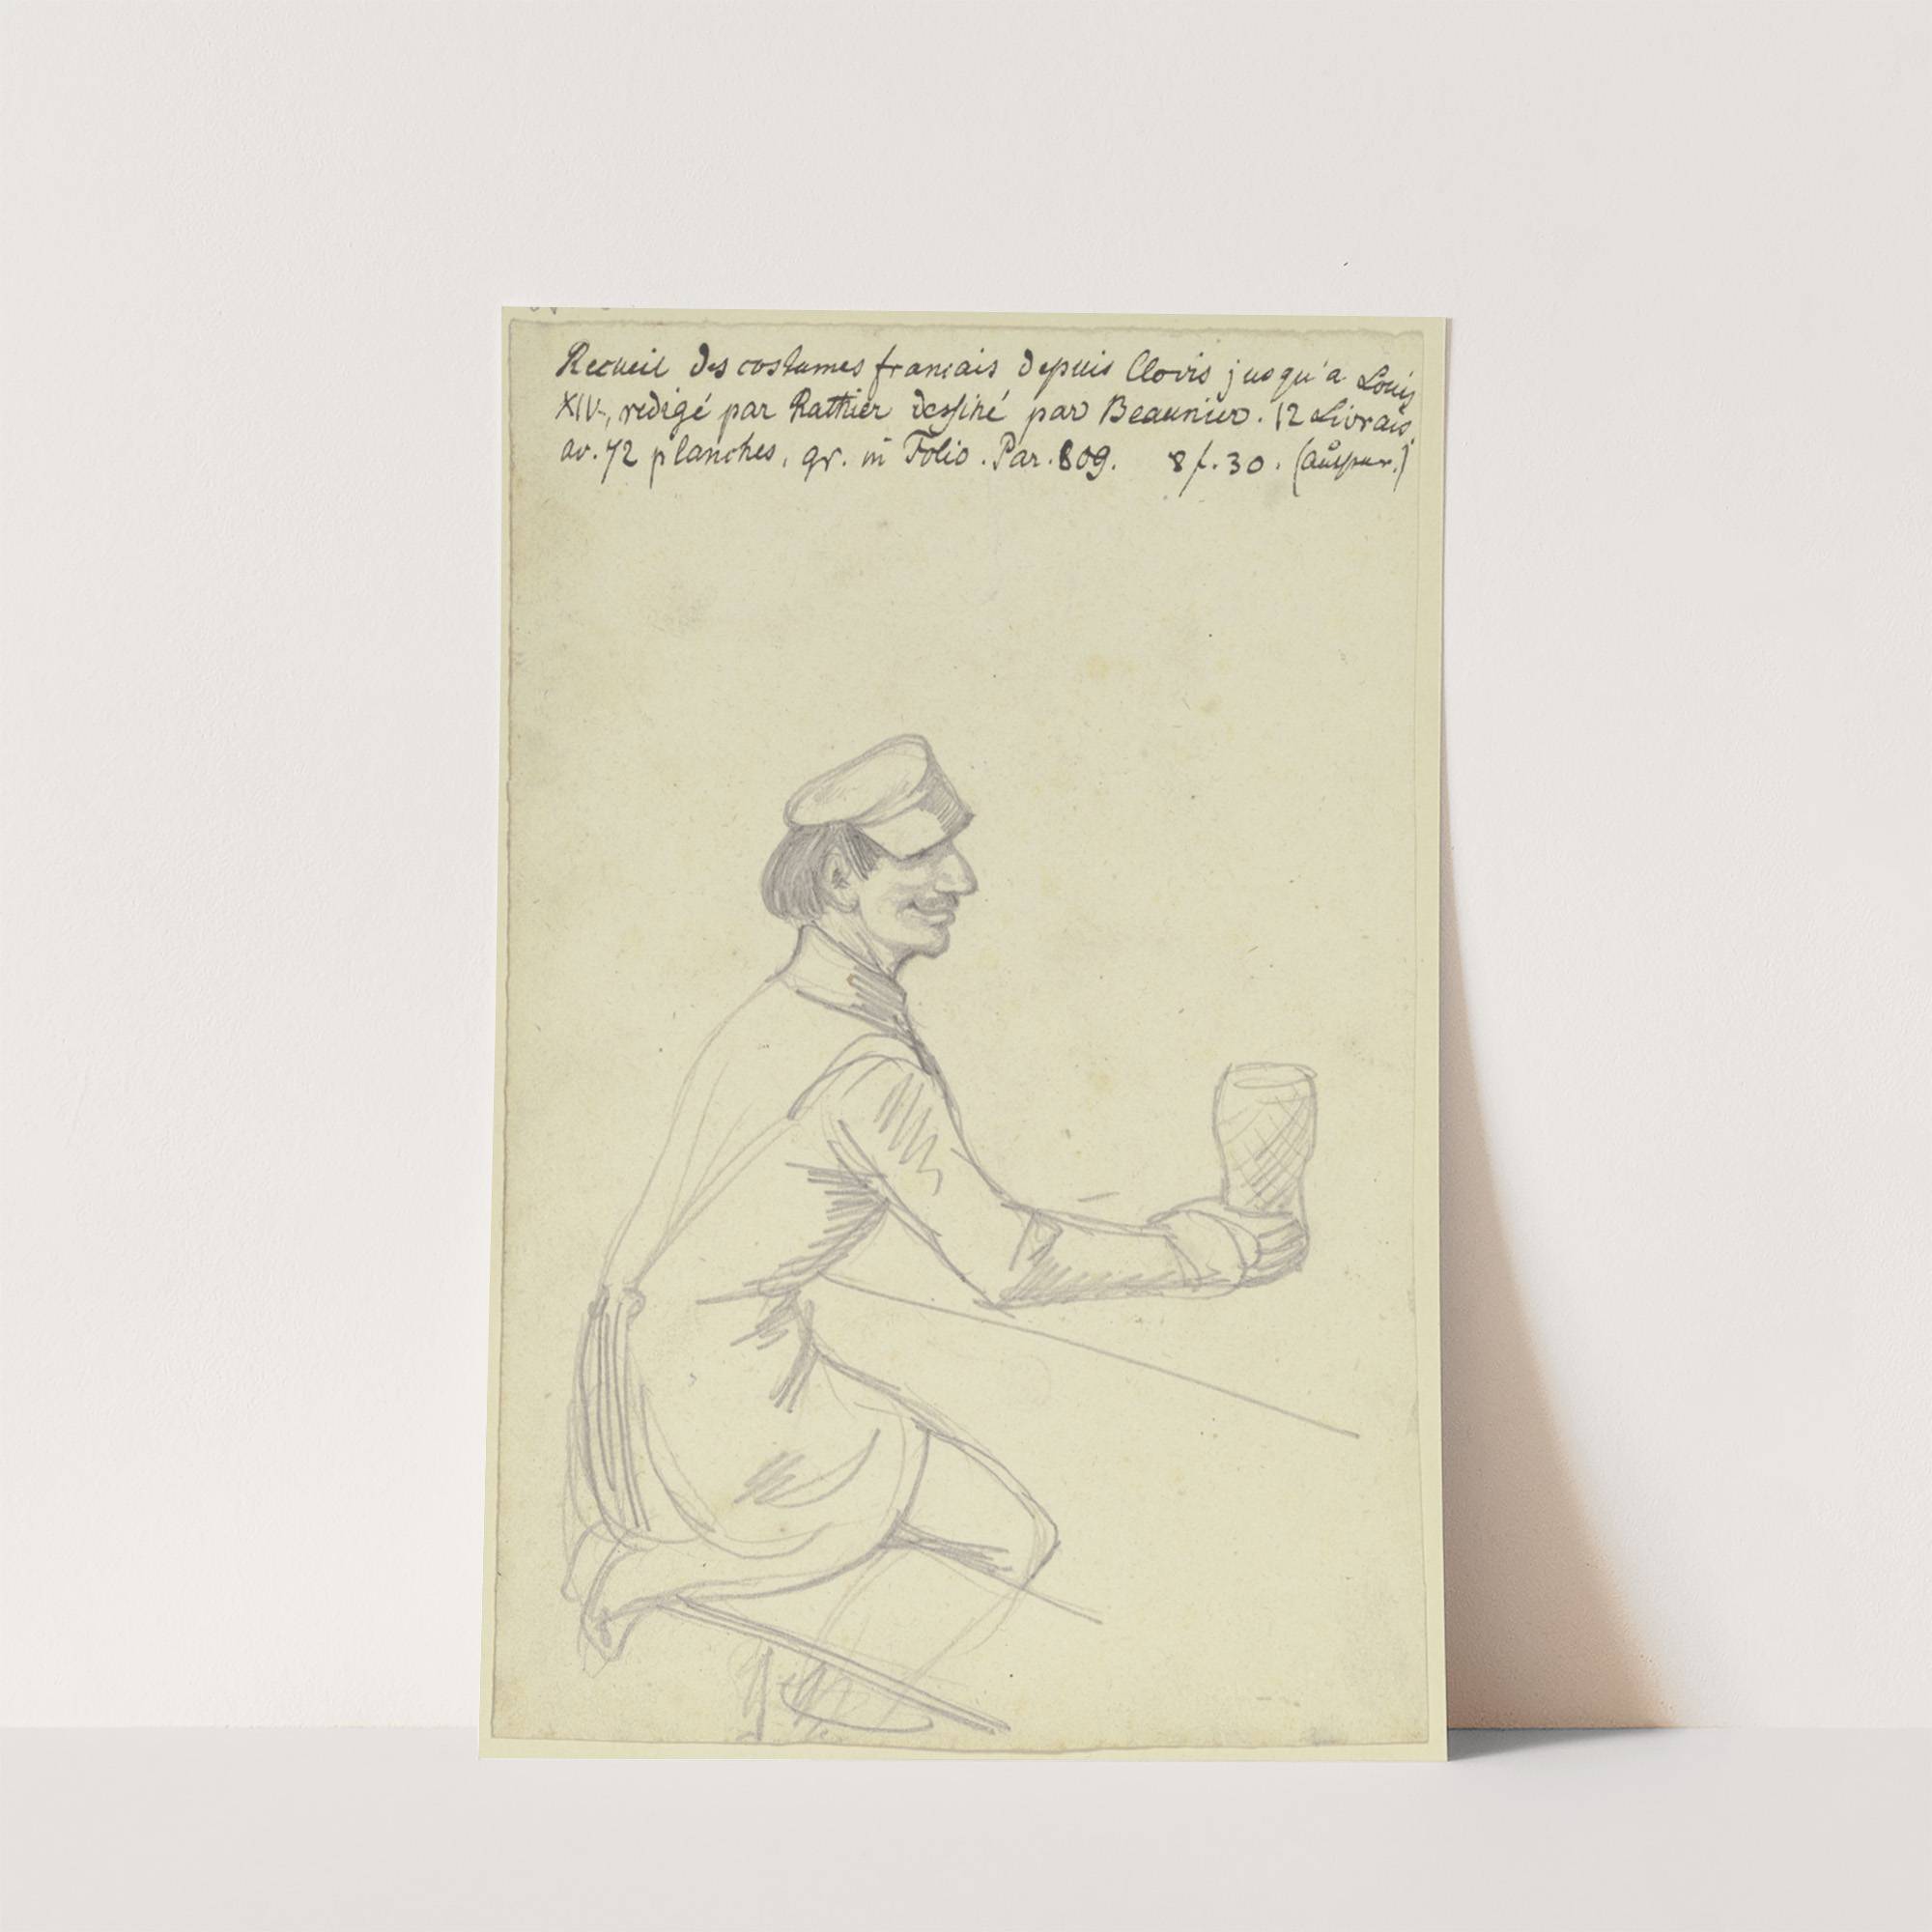 Recueil des costumes francais depuis Clovis jusqu'a Louis
XIV, redigé par Rathier dessiné par Beaunier. 12 Livrais.
av. 72 planches, gr. in Folio. Par. 809. 8 f. 30.